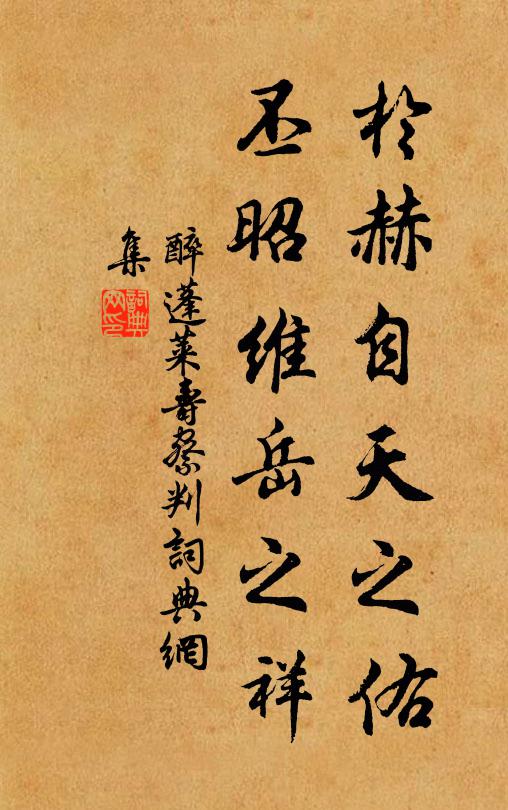 於赫自天之佑
丕昭維岳之祥
醉蓬萊壽蔡判詞典網
集
詞典網印